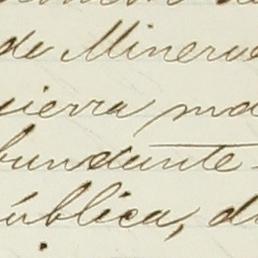 de Minerv
sierra ma
bundante
ública, d